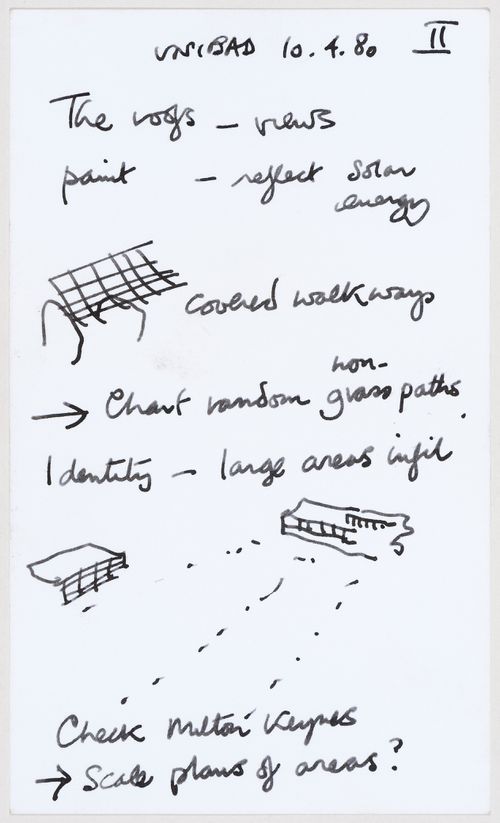 UNIBAD 10.4.80 II
The roofs – views
paint – reflect solar
energy
covered walkways
non-
→ Chart random grass paths.
Identity – large areas infil
Check Milton Keynes
→ Scale plans of areas?